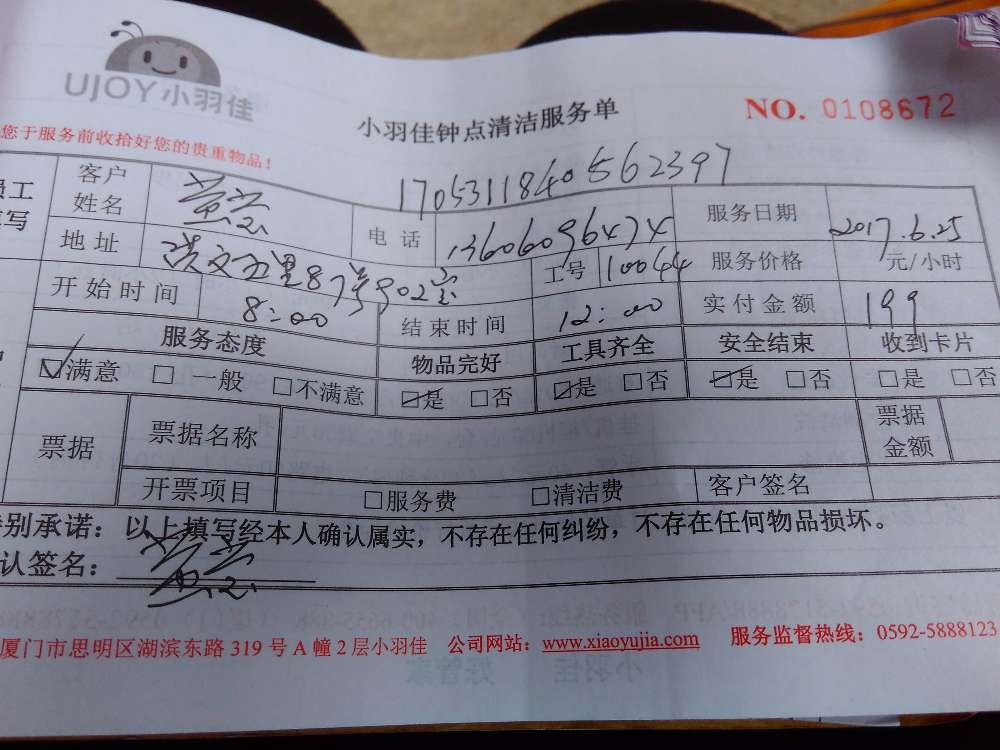 UJOY小羽佳
小羽佳钟点清洁服务单
NO. 0108672
您于服务前收拾好您的贵重物品!
1705311840562397
客户姓名 电话 13606096474 服务日期 2017.6.25
地址 洪文五里87号902室 工号 10044 服务价格 元/小时
开始时间 8:00 结束时间 12:00 实付金额 199
服务态度 物品完好 工具齐全 安全结束 收到卡片
☑满意 □一般 □不满意 ☑是 □否 ☑是 □否 ☑是 □否 □是 □否
票据 票据名称 票据金额
开票项目 □服务费 □清洁费 客户签名
别承诺:以上填写经本人确认属实,不存在任何纠纷,不存在任何物品损坏。
认签名:
厦门市思明区湖滨东路 319 号 A 幢 2 层小羽佳 公司网站:www.xiaoyujia.com 服务监督热线:0592-5888123